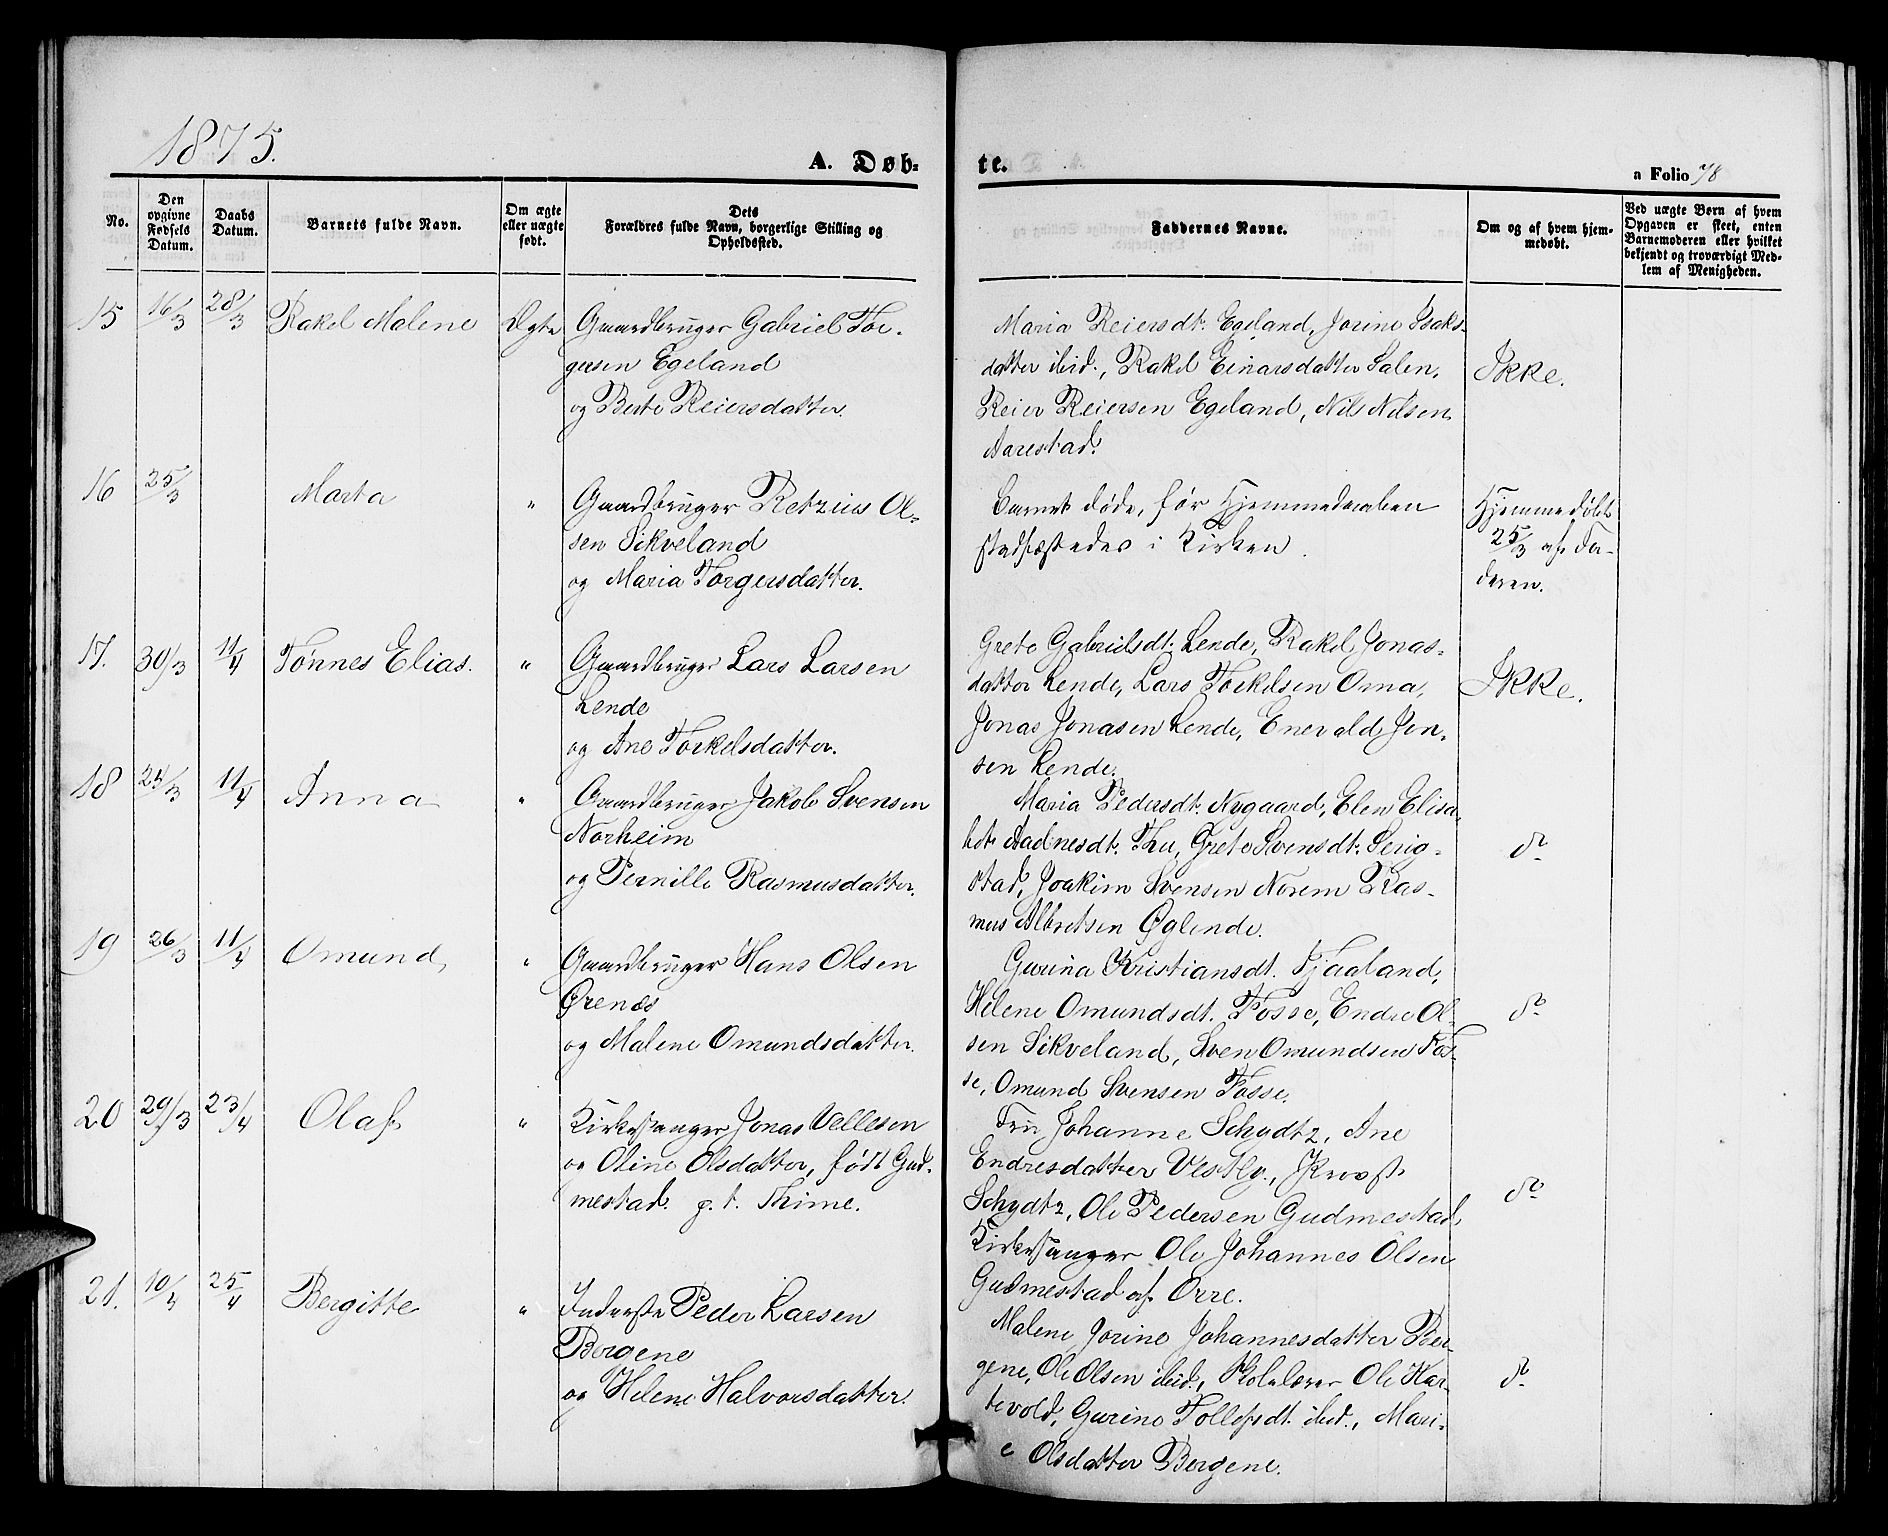 1875.
A. Døb-
te.
a Folio 78
No.
Den opgivne Fødsels Datum.
Daabs Datum.
Barnets fulde Navn.
Om ægte eller uægte født.
Dets Forældres fulde Navn, borgerlige Stilling og Opholdssted.
Faddernes Navne.
Om og af hvem hjemmedøbt.
Ved uægte Børn af hvem Opgaven er skeet, enten Barnemoderen eller hvilket bekjendt og troværdigt Medlem af Menigheden.
15 16/3 28/3 Rakel Malene Ægte Gaardbruger Gabriel Tor-
gersen Egeland
og Berte Reiersdatter.
Maria Reiersdt. Egeland, Jorine Isaks-
datter ibid., Rakel Einarsdatter Salen,
Reier Reiersen Egeland, Nils Nilsen
Aarestad.
Ikke.
16 25/3 Marta " Gaardbruger Retzius Ol-
sen Sikveland
og Maria Torgersdatter.
Barnet døde, før Hjemmedaaben
stadfæstedes i Kirken.
Hjemmedøbt
25/3 af Fa-
deren.
17. 30/3 11/4 Tønnes Elias. " Gaardbruger Lars Larsen
Lende
og Ane Torkelsdatter.
Grete Gabrielsdt. Lende, Rakel Jonas-
datter Lende, Lars Torkelsen Oma,
Jonas Jonasen Lende, Enevald Jon-
sen Lende.
Ikke.
18 24/3 11/4 Anna " Gaardbruger Jakob Svensen
Norheim
og Pernille Rasmusdatter.
Maria Pedersdt. Nygaard, Elen Elisa-
bet Aadnesdt. Thu, Grete Svensdt. Serig-
stad, Joakim Svensen Norem Ras-
mus Albretsen Øglende.
do
19 26/3 11/4 Omund, " Gaardbruger Hans Olsen
Ørenæs
og Malene Omundsdatter.
Gurina Kristiansdt. Tjaaland,
Helene Omundsdt. Fosse, Endre Ol-
sen Sikveland, Sven Omundsen Fos-
se, Omund Svensen Fosse.
do
20 29/3 23/4 Olaf " Kirkesanger Jonas Vellesen
og Oline Olsdatter, født Gud-
mestad. p. t. Thime.
Fru Johanne Schydtz, Ane
Endresdatter Vestly, Provst
Schydtz, Ole Pedersen Gudmestad,
Kirkesanger Ole Johannes Olsen
Gudmestad af Orre.
do
21. 10/4 25/4 Bergitte " Inderste Peder Larsen
Bergene
og Helene Halvorsdatter.
Malene Jorine Johannesdatter Ber-
gene, Ole Olsen ibid., Skolelærer Ole Har-
tevold, Gurine Tollefsdt. ibid., Mari-
e Olsdatter Bergene.
do